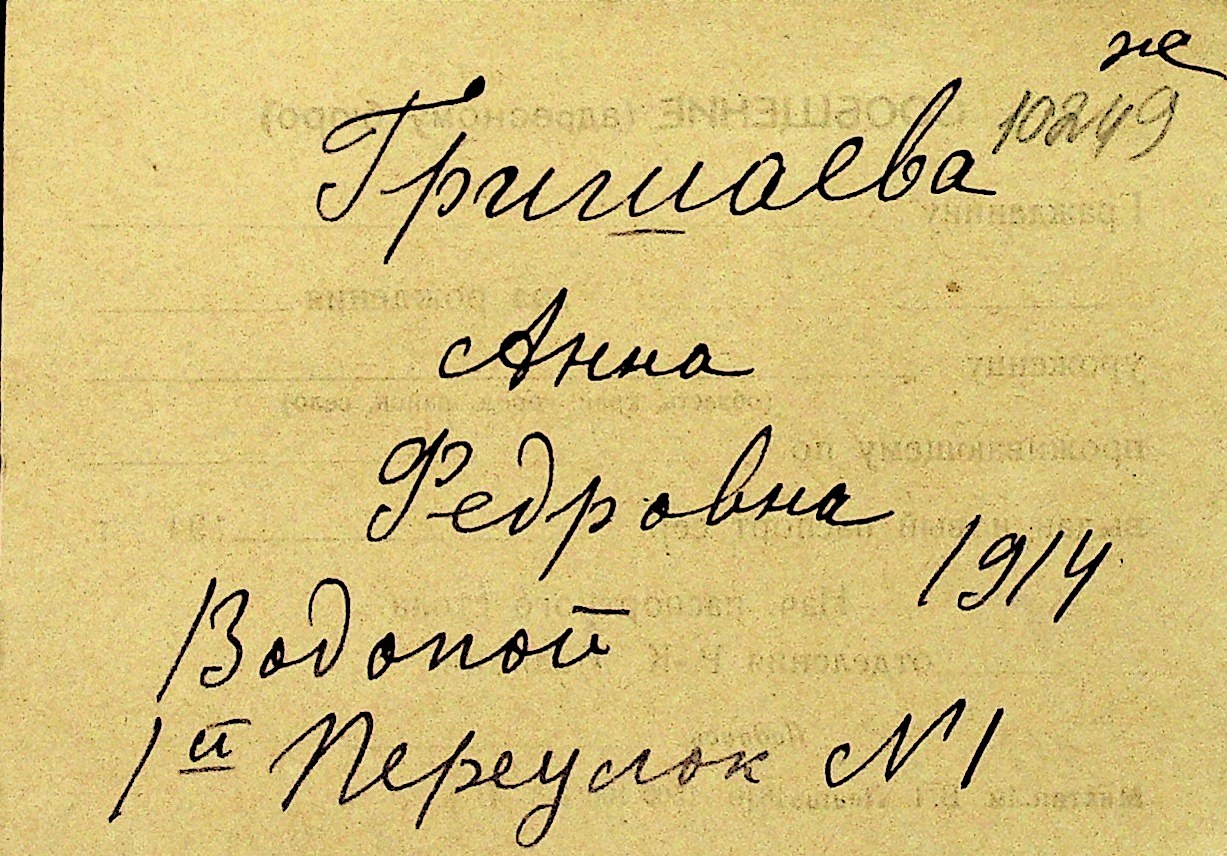 не
10249
Гришаева
Анна
Федровна
1914
Водопой
1й Переулок №1